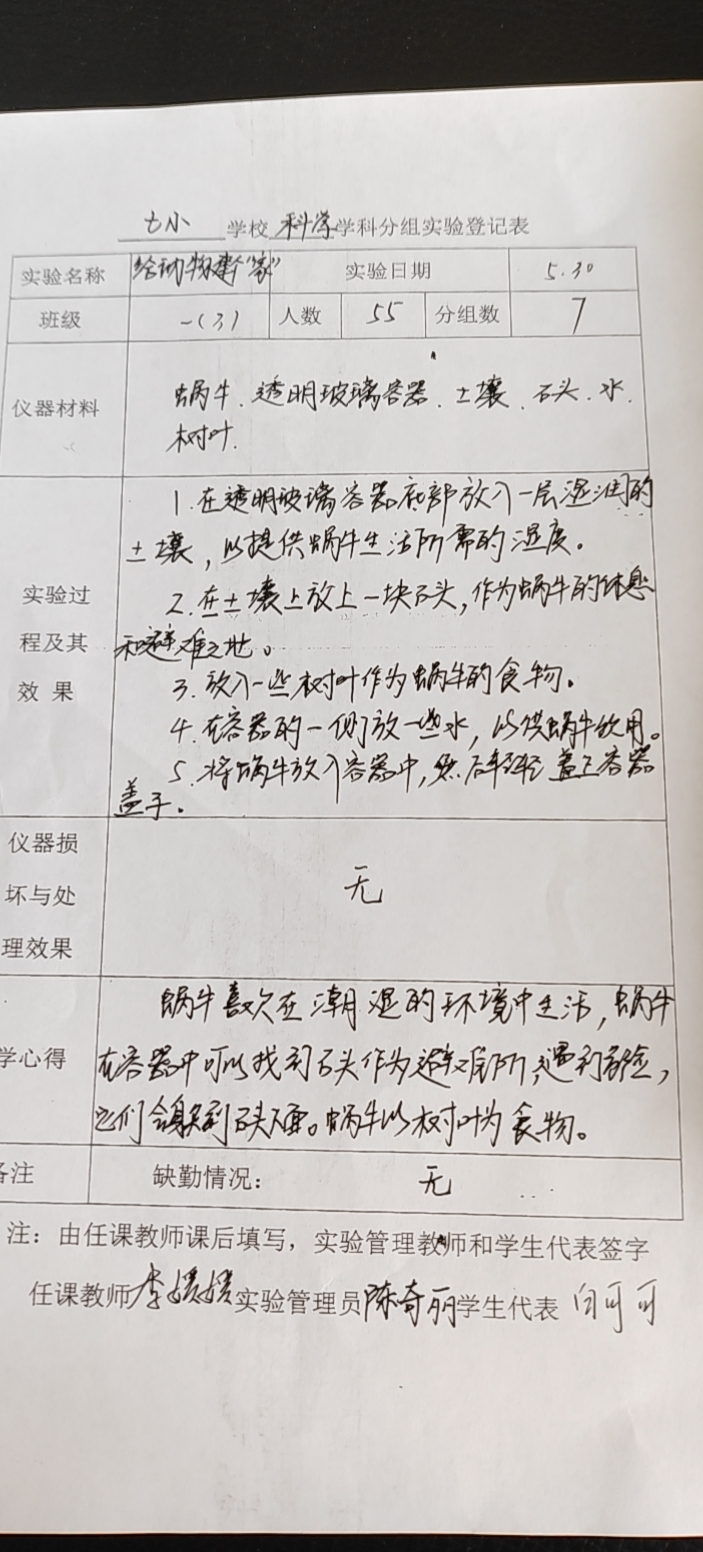 七小 学校 科学 学科分组实验登记表
实验名称 给动物建个“家” 实验日期 5.30
班级 一(3) 人数 55 分组数 7
仪器材料
蜗牛、透明玻璃容器、土壤、石头、水、
树叶.
1.在透明玻璃容器底部放入一层湿润的
土壤,以提供蜗牛生活所需的湿度。
实验过
2.在土壤上放上一块石头,作为蜗牛的休息
程及其
和避难之地。
效 果
3.放入一些树叶作为蜗牛的食物。
4.在容器的一侧放一些水,以供蜗牛饮用。
5.将蜗牛放入容器中,然后轻轻盖上容器
盖子.
仪器损
坏与处
理效果
无
蜗牛喜欢在潮湿的环境中生活,蜗牛
学心得
在容器中可以找到石头作为避难所,遇到危险,
它们会躲到石头下面。蜗牛以树叶为食物。
备注 缺勤情况: 无
注:由任课教师课后填写,实验管理教师和学生代表签字
任课教师 李媛媛 实验管理员 陈奇丽 学生代表 白可可